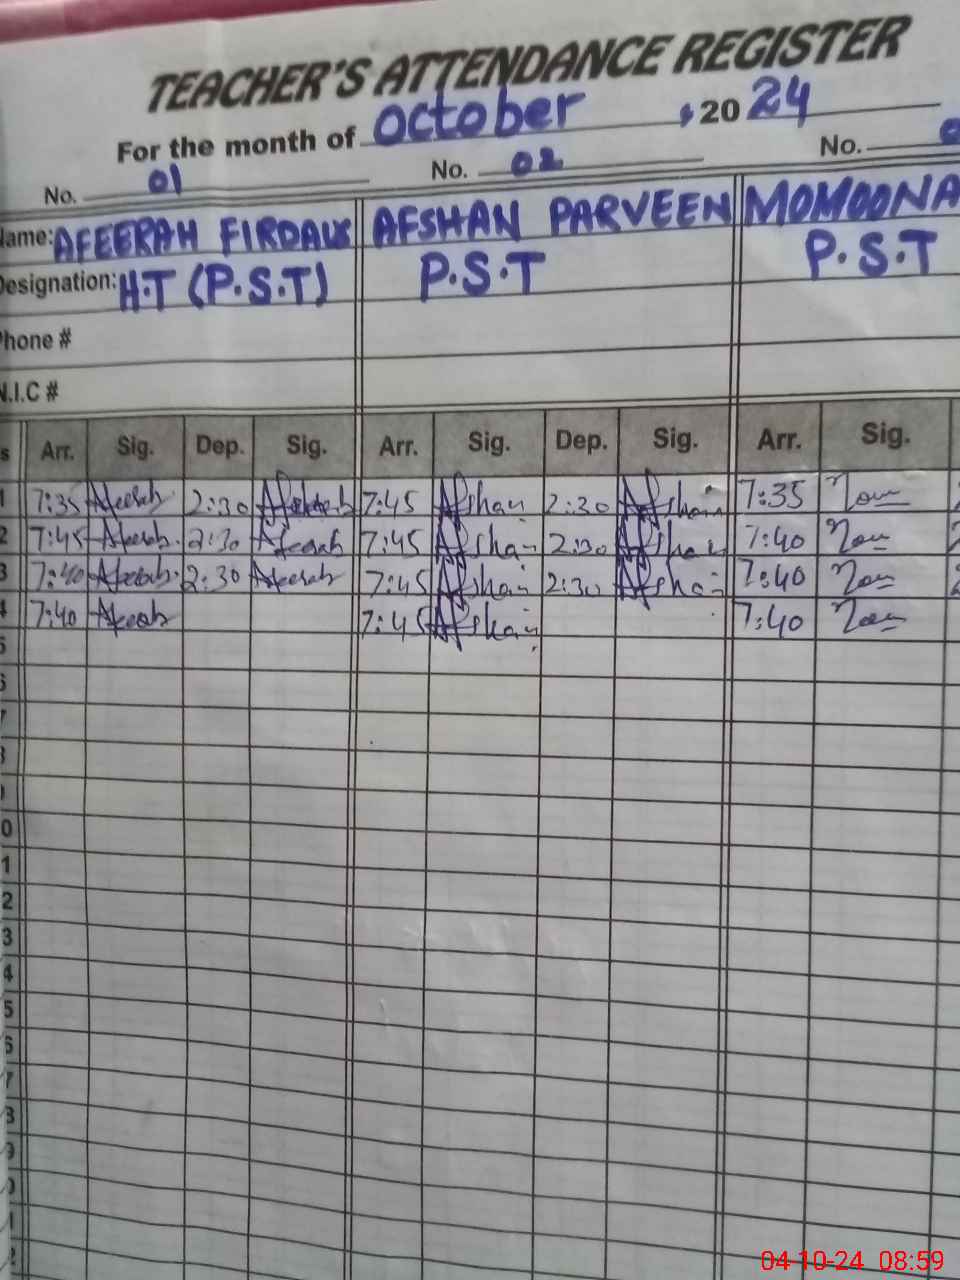 TEACHER'S ATTENDANCE REGISTER
For the month of October 2024
No. 01 No. 02 No.
Name: AFEERAH FIRDAUS AFSHAN PARVEEN MOMOONA
Designation: H.T (P.S.T) P.S.T P.S.T
Phone #
N.I.C #
s Arr. Sig. Dep. Sig. Arr. Sig. Dep. Sig. Arr. Sig.
1 7:35 Afeerah 2:30 Afeerah 7:45 Afshan 2:30 Afshan 7:35
2 7:45 Afeerah 2:30 Afeerah 7:45 Afshan 2:30 Afshan 7:40
3 7:40 Afeerah 2:30 Afeerah 7:45 Afshan 2:30 Afshan 7:40
4 7:40 Afeerah 7:45 Afshan 7:40
5
6
7
8
9
0
1
2
3
4
5
6
7
8
9
0
1
2
04-10-24 08:59